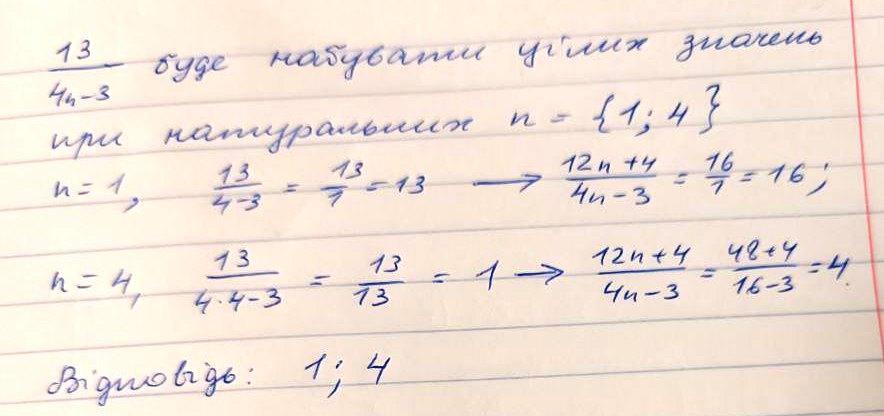 13/(4n-3) буде набувати цілих значень
при натуральних n = {1; 4}
n = 1, 13/(4-3) = 13/1 = 13 → (12n+4)/(4n-3) = 16/1 = 16;
n = 4, 13/(4·4-3) = 13/13 = 1 → (12n+4)/(4n-3) = (48+4)/(16-3) = 4.
Відповідь: 1; 4